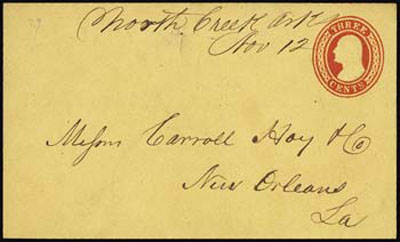 North Creek Ark
Nov 12
THREE
CENTS
Messrs Carroll Hoy & Co
New Orleans
La